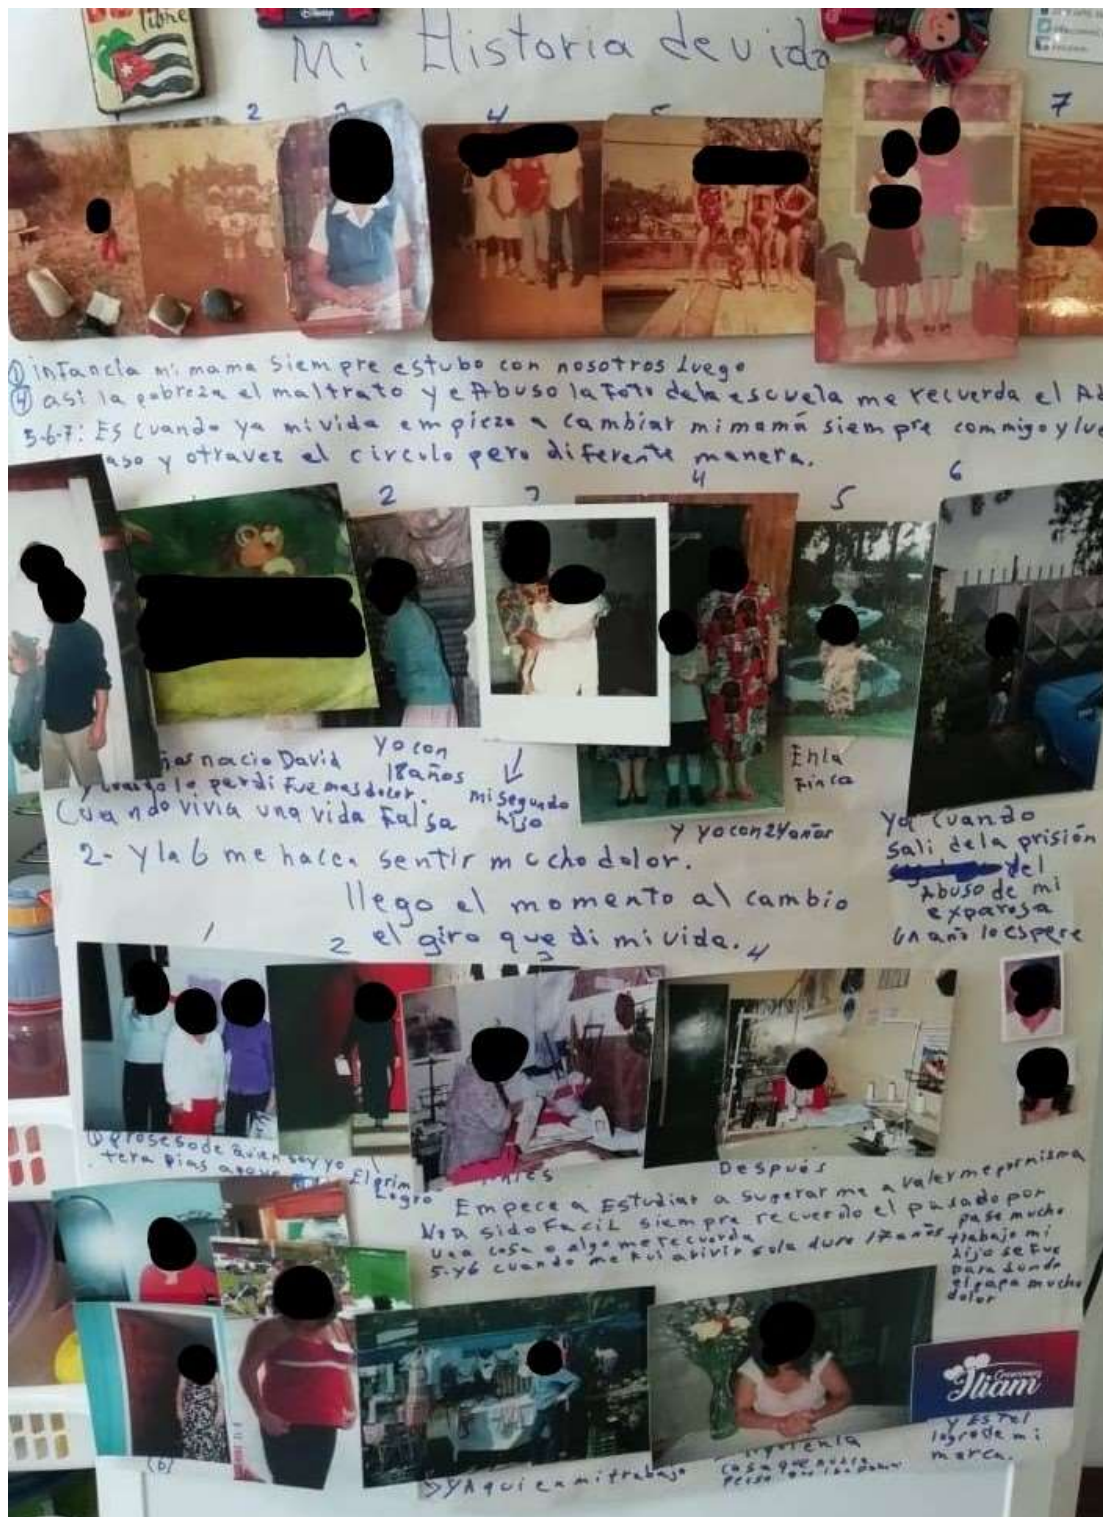 libre
Disney
Mi Historia de vida
2 3 4 5 7
① infancia mi mama siempre estubo con nosotros Luego
④ asi la pobreza el maltrato y e Abuso la Foto dela escuela me recuerda el
5-6-7: Es cuando ya mi vida empieza a cambiar mi mamá siempre commigo y
aso y otravez el circulo pero diferente manera.
2 3 4 5 6
nacio David
y luego lo perdi Fue mas dolor.
Cuando vivia una vida Falsa
yo con
18 años
mi segundo
hijo
y yo con 24 años
En la
Finca
ya cuando
sali dela prisión
del
Abuso de mi
exparosa
un año lo espere
2- y la 6 me hacen sentir mucho dolor.
llego el momento al cambio
el giro que di mi vida.
1 2 3 4
① proseso de quien soy yo
terapias
El prim
Logro
Después
Empece a Estudiar a superar me a valerme por misma
No a sido Facil siempre recuerdo el pasado por
una cosa o algo me recuerda
5-y6 cuando me fui a bivir sola dure 17 años
pase mucho
trabajo mi
hijo se Fue
para donde
el papa mucho
dolor
(6)
y Aqui en mi trabajo
cosa que nunca
Creaciones
Iliam
y Es Tel
logro de mi
marca.